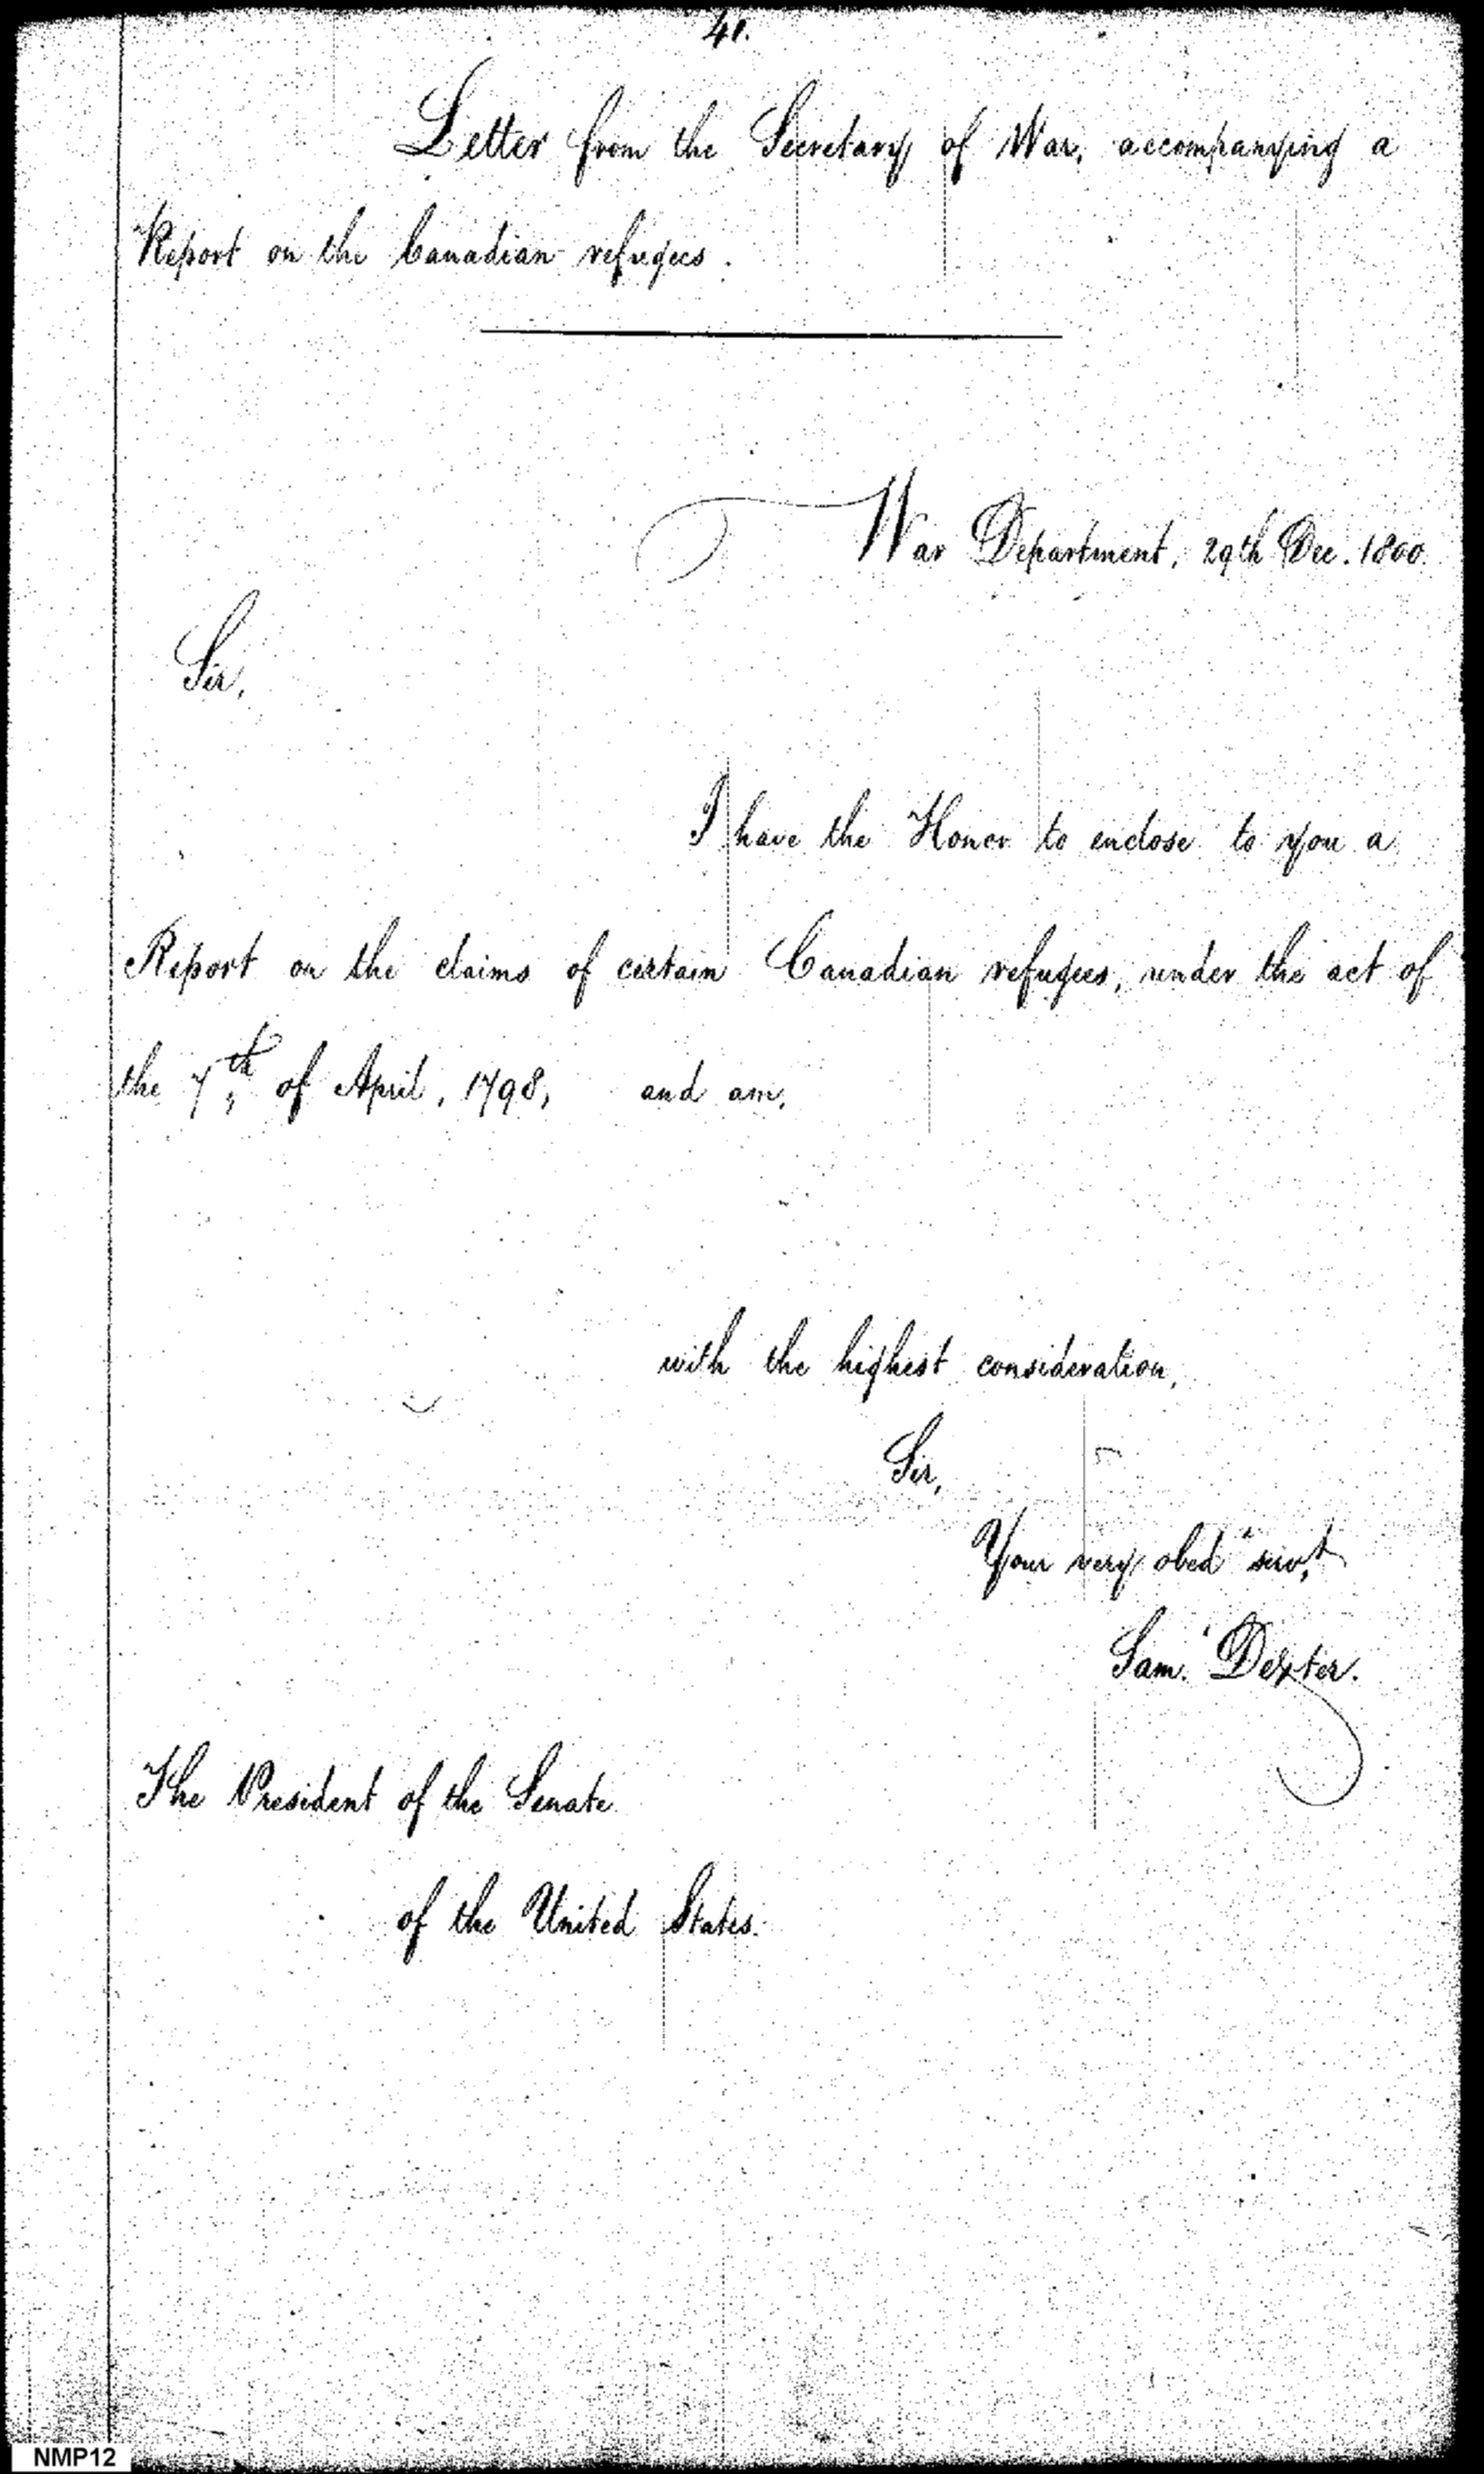 41.
Letter from the Secretary of War, accompanying a
Report on the Canadian refugees.
War Department, 29th Dec. 1800.
Sir,
I have the Honor to enclose to you a
Report on the claims of certain Canadian refugees, under the act of
the 7th, of April, 1798, and am,
with the highest consideration,
Sir,
Your very obed servt
Sam. Dexter.
The President of the Senate
of the United States.
NMP12